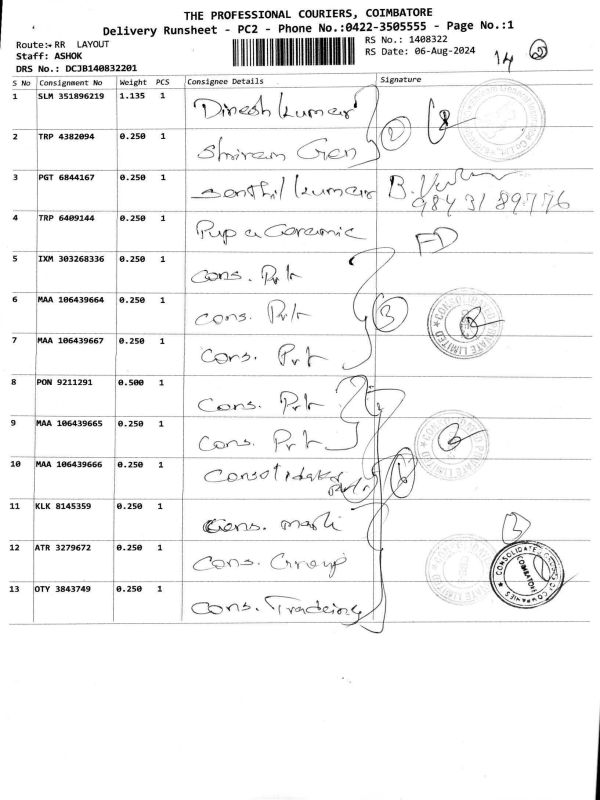 THE PROFESSIONAL COURIERS, COIMBATORE
Delivery Runsheet - PC2 - Phone No.:0422-3505555 - Page No.:1
Route:- RR LAYOUT
RS No.: 1408322
Staff: ASHOK
RS Date: 06-Aug-2024
14 2
DRS No.: DCJB140832201
S No Consignment No Weight PCS Consignee Details Signature
1 SLM 351896219 1.135 1 Dinesh kumar
2 TRP 4382094 0.250 1 Shriram Gen
2
3 PGT 6844167 0.250 1 Senthil kumar B.
98431 89776
4 TRP 6409144 0.250 1 Pup a Ceramic FD
5 IXM 303268336 0.250 1 Cons. Prk
6 MAA 106439664 0.250 1 Cons. Prk
3
7 MAA 106439667 0.250 1 Cons. Prk
CONSOLIDATED PRIVATE LIMITED
8 PON 9211291 0.500 1 Cons. Prk
9 MAA 106439665 0.250 1 Cons. Prk
10 MAA 106439666 0.250 1
6
11 KLK 8145359 0.250 1 Cons.
12 ATR 3279672 0.250 1 Cons. Group
CONSOLIDATED GROUP OF COMPANIES
COIMBATORE
13 OTY 3843749 0.250 1 Cons. Tradeing